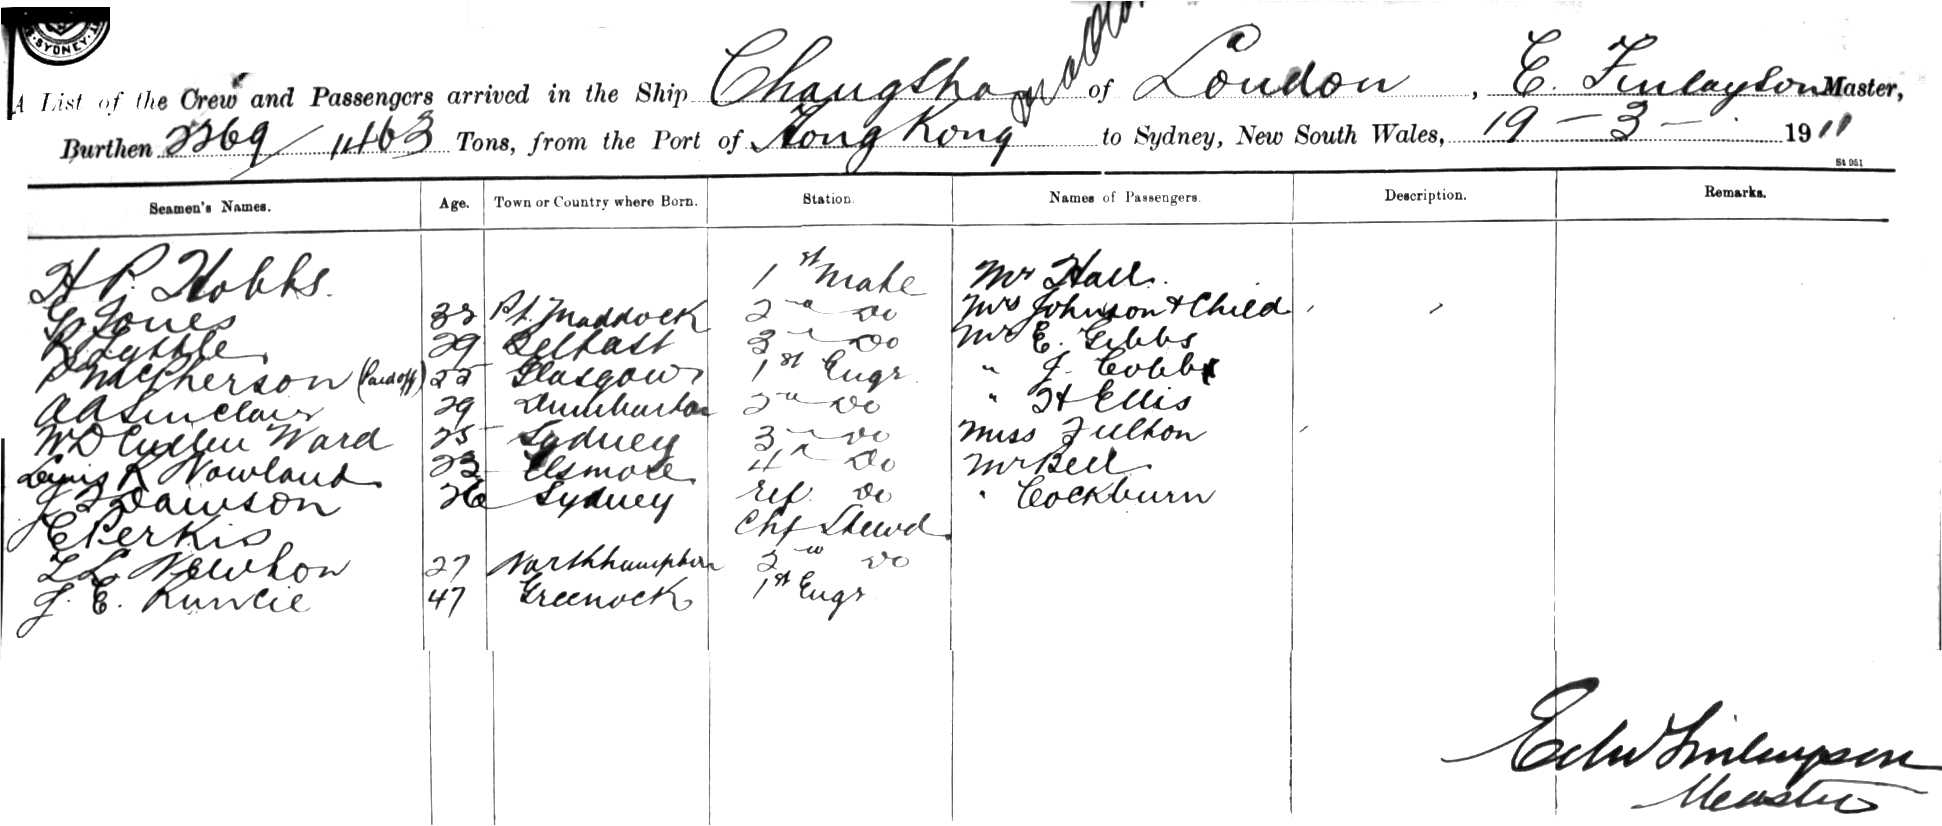 SYDNEY
A List of the Crew and Passengers arrived in the Ship Changsha of London, E. Finlayson Master,
Burthen 2269/1463 Tons, from the Port of Hong Kong to Sydney, New South Wales, 19 - 3 - 1911
St 961
Seamen's Names. Age. Town or Country where Born. Station. Names of Passengers. Description. Remarks.
H P. Hobbs. 1st Mate Mr Hall.
Jones 32 Pt. Maddock 2nd do Mrs Johnson & Child
R Lyttle 29 Belfast 3rd do Mr E. Gibbs
McPherson (Paid off) 22 Glasgow 1st Engr " J. Cobb
A A Sinclair 29 Dumbarton 2nd do " H Ellis
W D Cullen Ward 25 Sydney 3rd do Miss Fulton
Louis R Nowland 23 Lismore 4th do Mr Bell
J F Dawson 26 Sydney ref. do " Cockburn
C Perkis Chf Stewd
L L Newton 27 Northhampton 2nd do
J. E. Runcie 47 Greenock 1st Engr
Edw Finlayson
Master